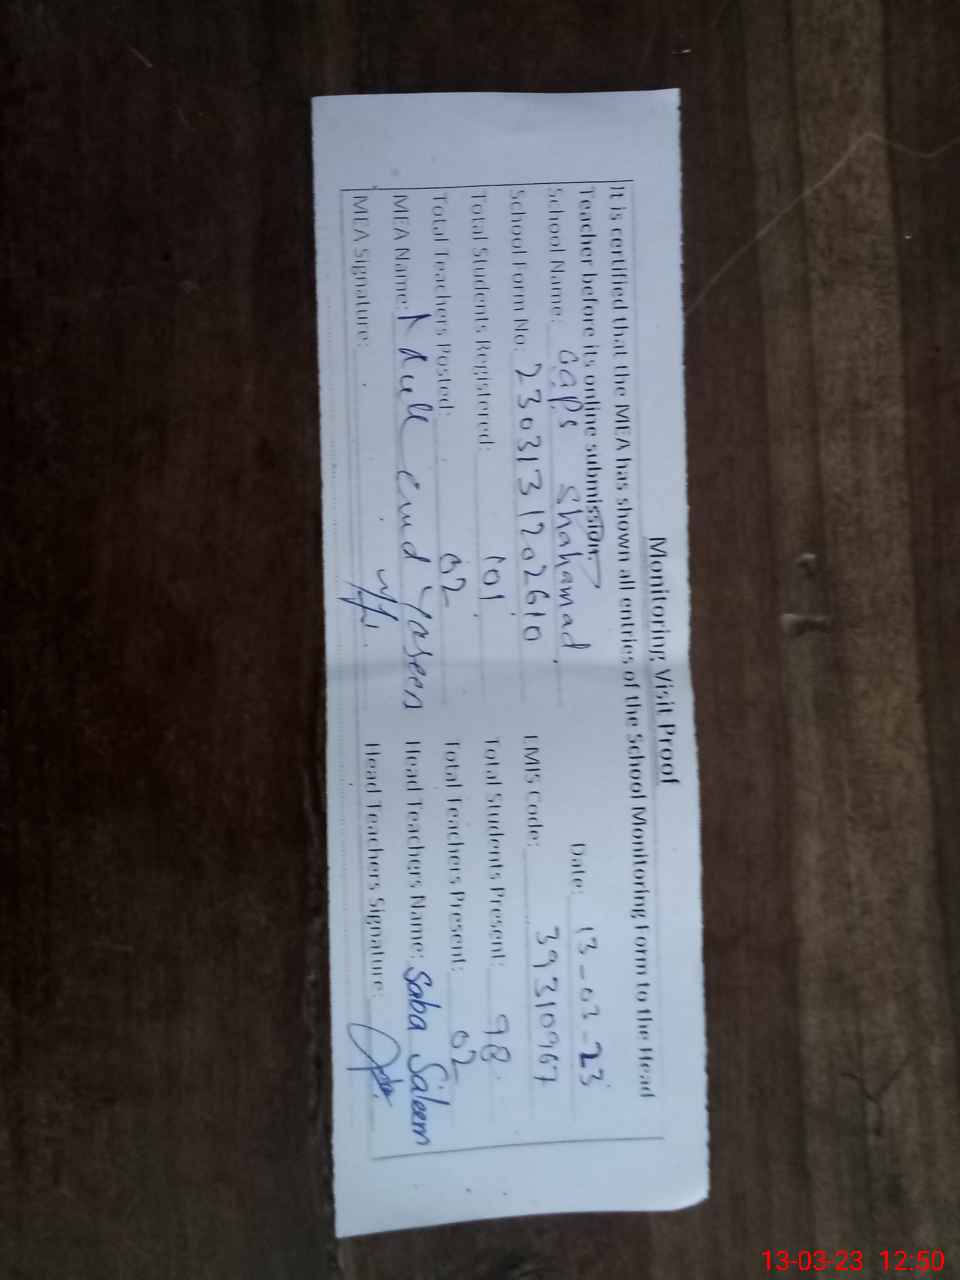 Monitoring Visit Proof
It is certified that the MEA has shown all entries of the School Monitoring Form to the Head
Teacher before its online submission.
Date: 13-03-23
School Name: GGPS Shahamad
School Form No: 2303131202610 EMIS Code: 39310967
Total Students Registered: 101 Total Students Present: 98
Total Teachers Posted: 02 Total Teachers Present: 02
MEA Name: Yaseen Head Teachers Name: Saba Saleem
MEA Signature: Head Teachers Signature:
13-03-23 12:50